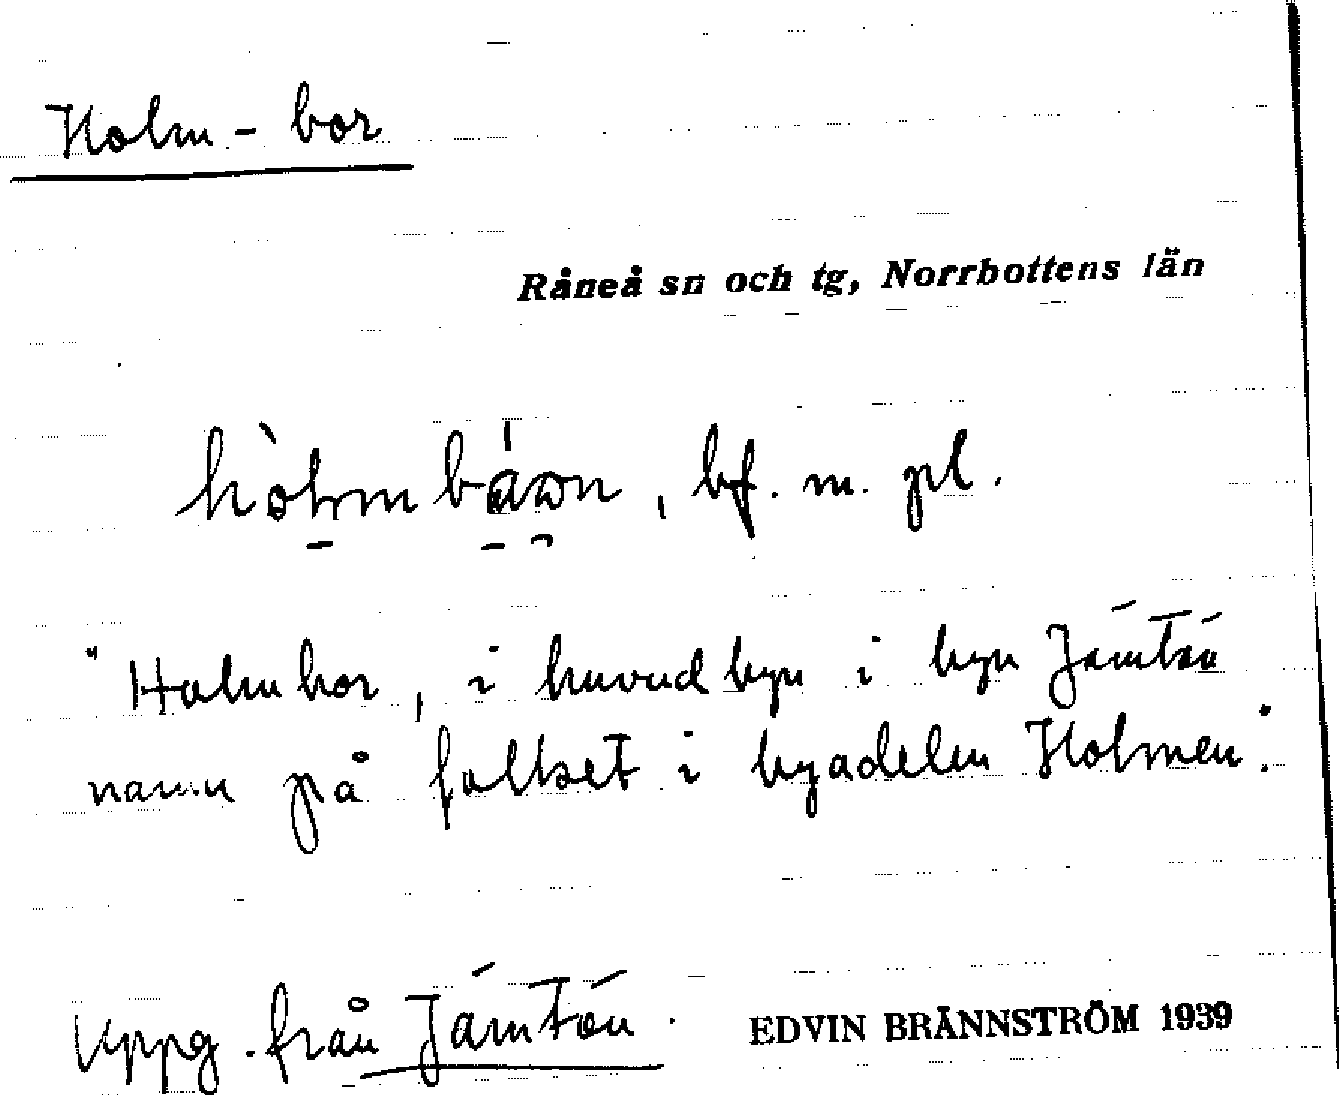 Holm-bor
Råneå sn och tg, Norrbottens län
bf. m. pl.
"Holmbor, i huvudbyn i byn Jämtön
namn på folket i byadelen Holmen".
Uppg. från Jämtön.
EDVIN BRÄNNSTRÖM 1939